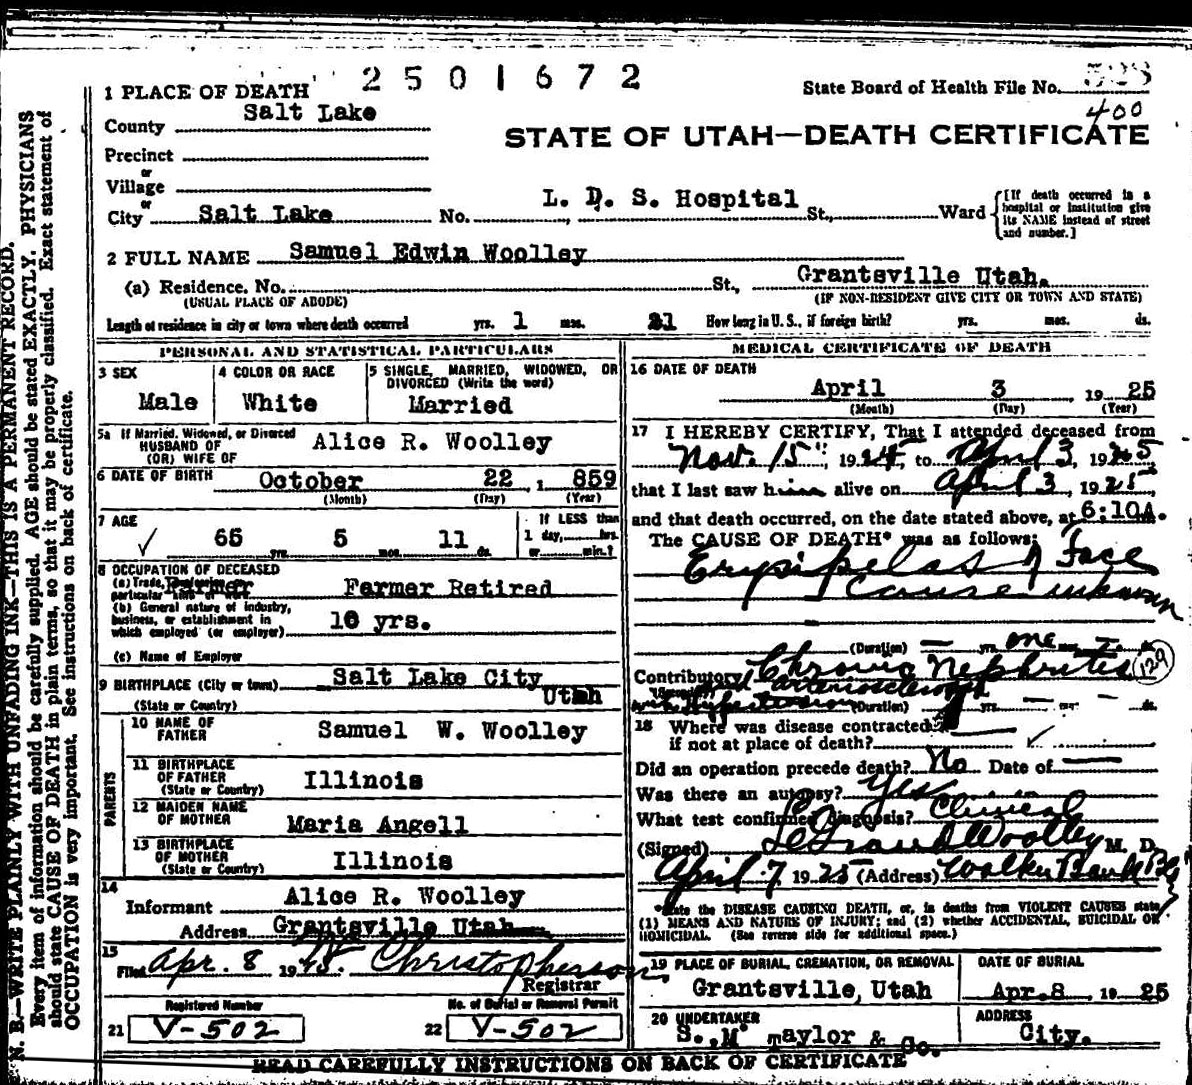 2501672
State Board of Health File No.
400
STATE OF UTAH—DEATH CERTIFICATE
1 PLACE OF DEATH
County Salt Lake
Precinct
or
Village
or
City Salt Lake No. L. D. S. Hospital St., Ward
[If death occurred in a hospital or institution give its NAME instead of street and number.]
2 FULL NAME Samuel Edwin Woolley
(a) Residence. No. St., Grantsville Utah.
(USUAL PLACE OF ABODE) (IF NON-RESIDENT GIVE CITY OR TOWN AND STATE)
Length of residence in city or town where death occurred yrs. 1 mos. 21 How long in U. S., if foreign birth? yrs. mos. ds.
PERSONAL AND STATISTICAL PARTICULARS
3 SEX
Male
4 COLOR OR RACE
White
5 SINGLE, MARRIED, WIDOWED, OR DIVORCED (Write the word)
Married
5a If Married, Widowed, or Divorced
HUSBAND OF
(OR) WIFE OF
Alice R. Woolley
6 DATE OF BIRTH October 22, 1 859
(Month) (Day) (Year)
7 AGE
✓ 65 yrs. 5 mos. 11 ds.
If LESS than
1 day, hrs.
or min.?
8 OCCUPATION OF DECEASED
(a) Trade,
particular
Farmer Retired
(b) General nature of industry,
business, or establishment in
which employed (or employer) 10 yrs.
(c) Name of Employer
9 BIRTHPLACE (City or town) Salt Lake City
(State or Country) Utah
PARENTS
10 NAME OF FATHER Samuel W. Woolley
11 BIRTHPLACE OF FATHER (State or Country) Illinois
12 MAIDEN NAME OF MOTHER Maria Angell
13 BIRTHPLACE OF MOTHER (State or Country) Illinois
14
Informant Alice R. Woolley
Address Grantsville Utah
15
Filed Apr. 8 1925. Christopherson
Registrar
Registered Number
21 V-502
No. of Burial or Removal Permit
22 V-502
MEDICAL CERTIFICATE OF DEATH
16 DATE OF DEATH
April 3, 19 25
(Month) (Day) (Year)
17 I HEREBY CERTIFY, That I attended deceased from
Nov. 15", 1924, to April 3, 1925
that I last saw him alive on April 3, 1925,
and that death occurred, on the date stated above, at 6:10A.
The CAUSE OF DEATH* was as follows:
Erysipelas of Face
Cause unknown
(Duration) — yrs. one mos.
Contributory Chronic Nephrites 129
arteriosclerosis
Hypertension (Duration) yrs. — — ds.
18 Where was disease contracted
if not at place of death? ✓
Did an operation precede death? No Date of —
Was there an autopsy? Yes
What test confirmed diagnosis? Clinical
(Signed) LeGrand Woolley M. D.
April 7 1925 (Address) Walker Bank Bg
*State the DISEASE CAUSING DEATH, or, in deaths from VIOLENT CAUSES state
(1) MEANS AND NATURE OF INJURY; and (2) whether ACCIDENTAL, SUICIDAL OR
HOMICIDAL. (See reverse side for additional space.)
19 PLACE OF BURIAL, CREMATION, OR REMOVAL
Grantsville, Utah
DATE OF BURIAL
Apr.8 19 25
20 UNDERTAKER
S. M Taylor & Co.
ADDRESS
City.
READ CAREFULLY INSTRUCTIONS ON BACK OF CERTIFICATE
N. B.—WRITE PLAINLY WITH UNFADING INK—THIS IS A PERMANENT RECORD.
Every item of information should be carefully supplied. AGE should be stated EXACTLY. PHYSICIANS
should state CAUSE OF DEATH in plain terms, so that it may be properly classified. Exact statement of
OCCUPATION is very important. See instructions on back of certificate.